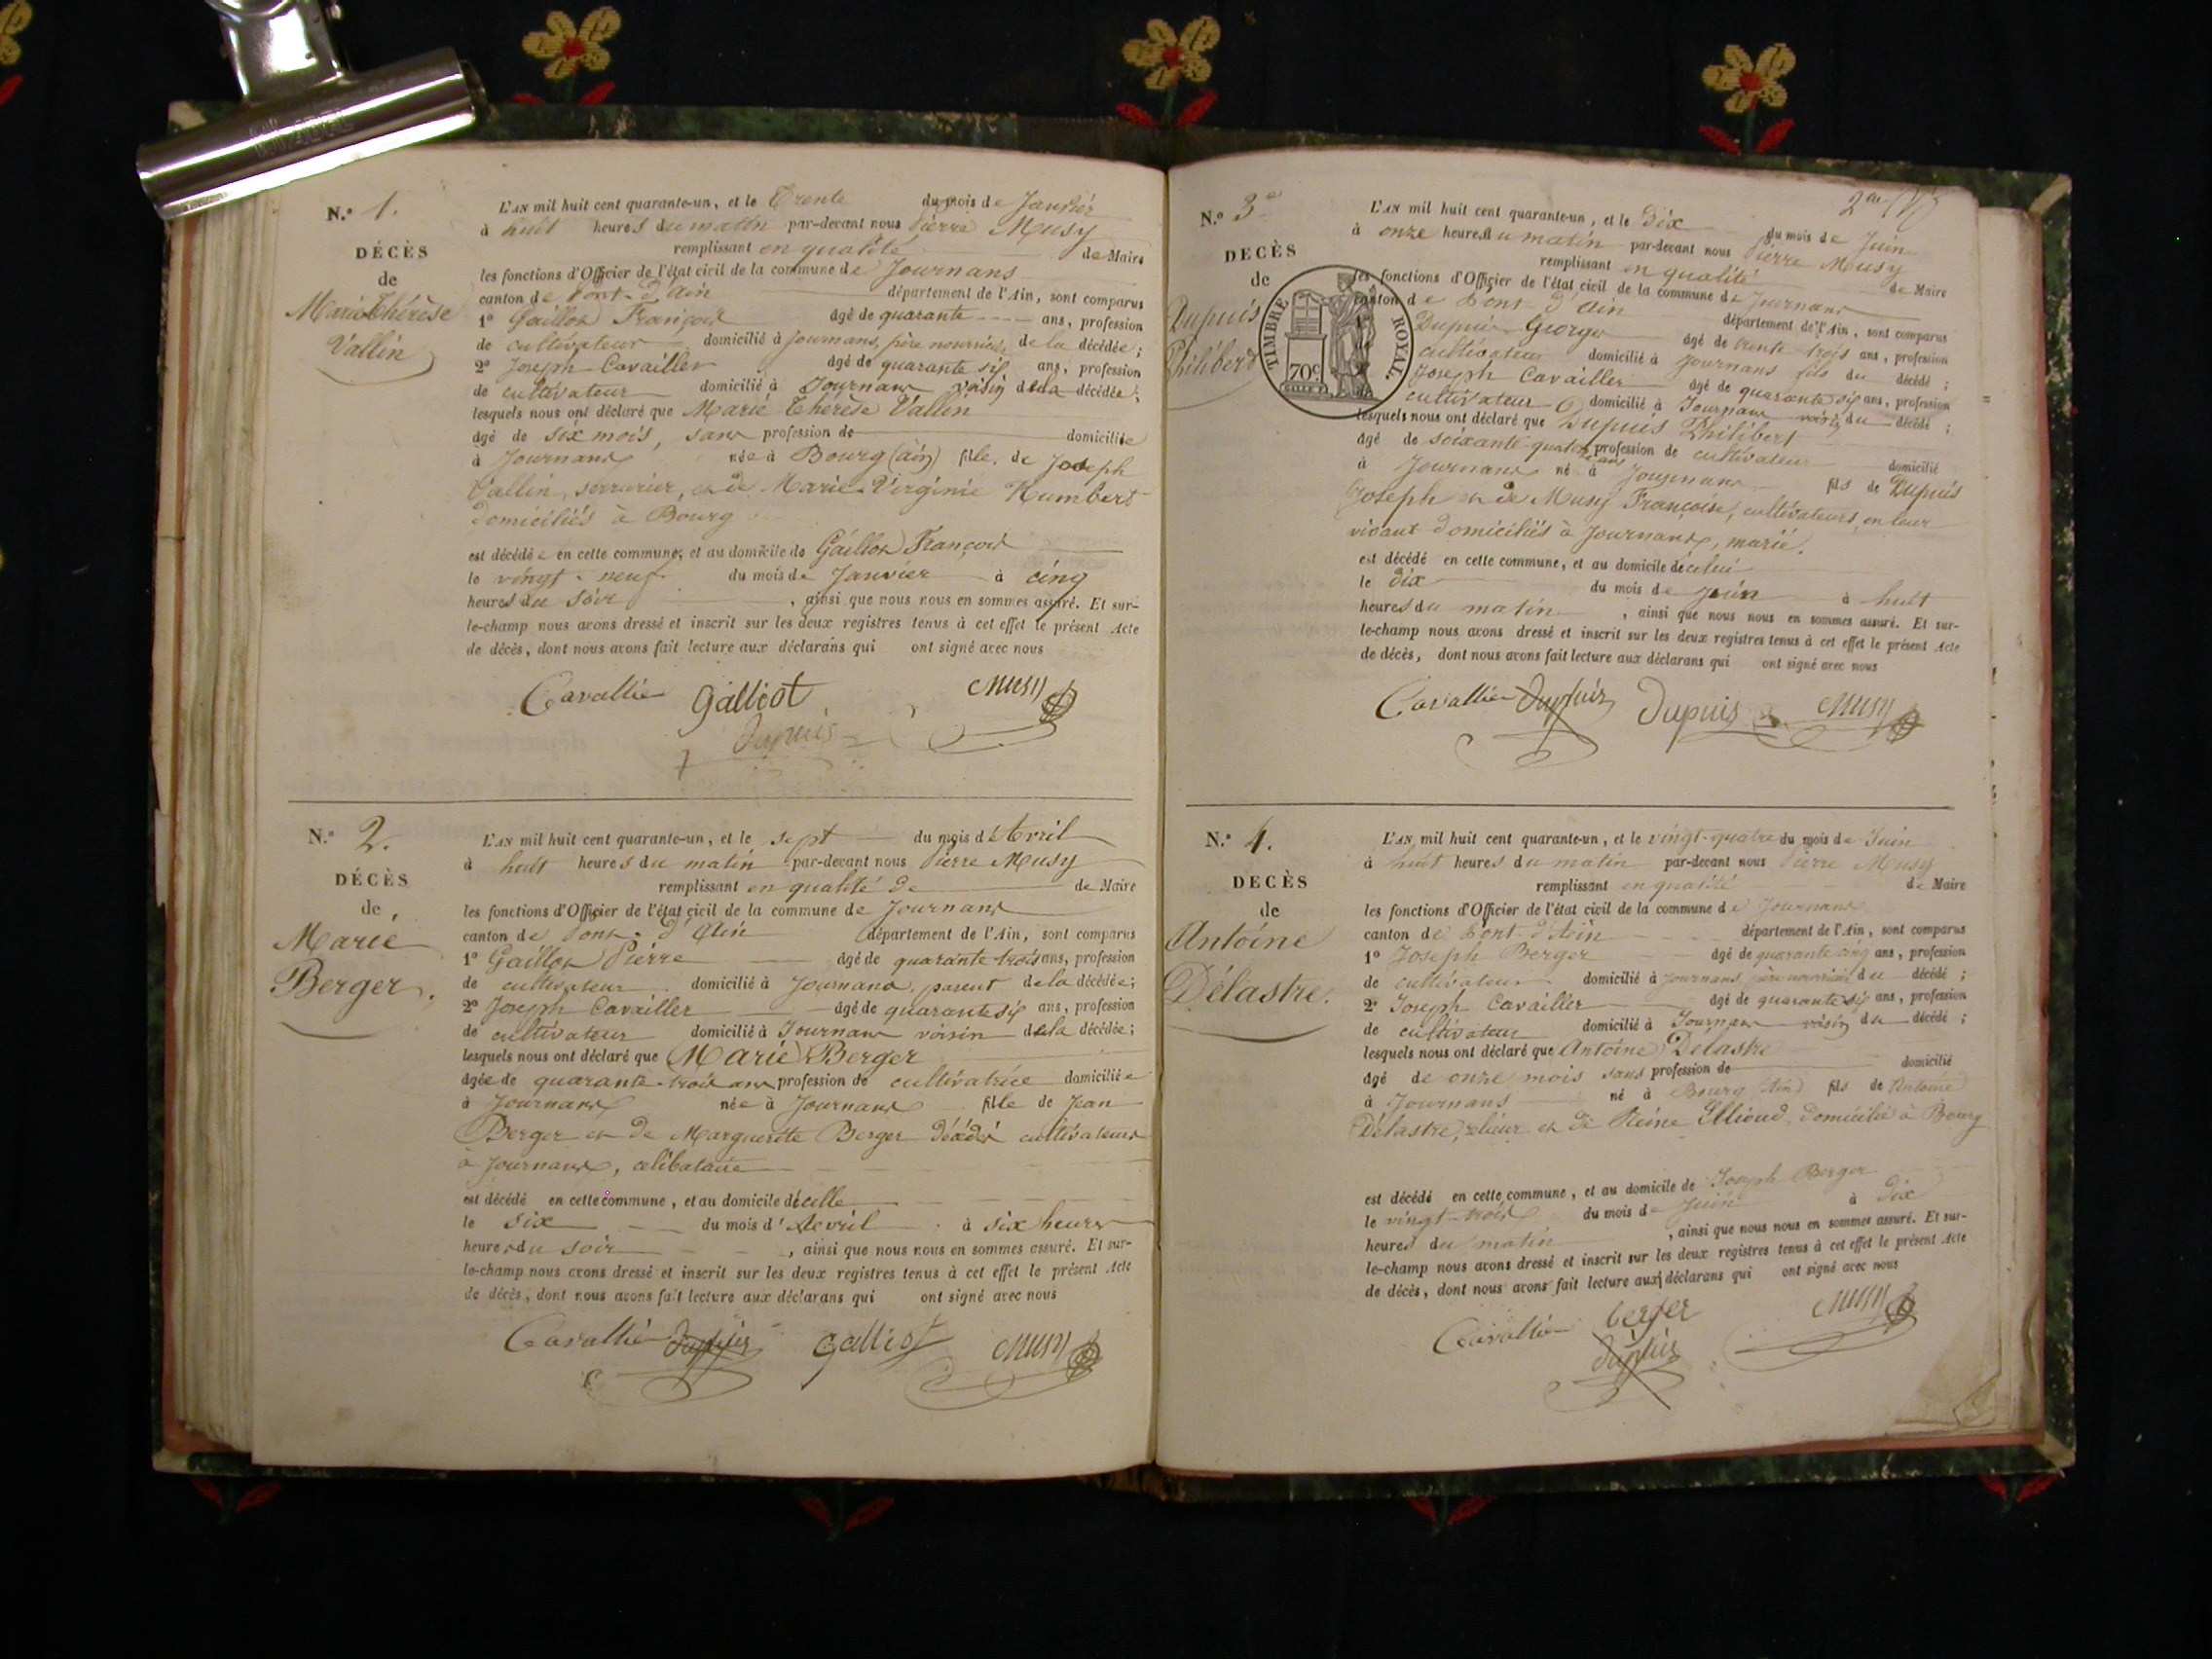 N.° 1.
DÉCÈS
de
Marie Thérèse
Vallin
L'AN mil huit cent quarante-un, et le Trente du mois de Janvier
à huit heures du matin par-devant nous Pierre Musy
remplissant en qualité de Maire
les fonctions d'Officier de l'état civil de la commune de Journans
canton de Pont-d'Ain département de l'Ain, sont comparus
1° Gaillot François âgé de quarante ans, profession
de cultivateur domicilié à Journans, père nourricier de la décédée;
2° Joseph Cavailler âgé de quarante six ans, profession
de cultivateur domicilié à Journans voisin de la décédée;
lesquels nous ont déclaré que Marie Thérèse Vallin
âgé de six mois, sans profession de domiciliée
à Journans née à Bourg (ain) fille de Joseph
Vallin, serrurier, et de Marie-Virginie Humbert
domiciliés à Bourg
est décédée en cette commune, et au domicile de Gaillot François
le vingt-neuf du mois de Janvier à cinq
heures du soir, ainsi que nous nous en sommes assuré. Et sur-
le-champ nous avons dressé et inscrit sur les deux registres tenus à cet effet le présent Acte
de décès, dont nous avons fait lecture aux déclarans qui ont signé avec nous
Cavallier Galliot Musy
Dupuis
N.° 2.
DÉCÈS
de
Marie
Berger.
L'AN mil huit cent quarante-un, et le sept du mois d'Avril
à huit heures du matin par-devant nous Pierre Musy
remplissant en qualité de de Maire
les fonctions d'Officier de l'état civil de la commune de Journans
canton de Pont-d'Ain département de l'Ain, sont comparus
1° Gaillot Pierre âgé de quarante trois ans, profession
de cultivateur domicilié à Journans parent de la décédée;
2° Joseph Cavailler âgé de quarante six ans, profession
de cultivateur domicilié à Journans voisin de la décédée;
lesquels nous ont déclaré que Marie Berger
âgée de quarante-trois ans profession de cultivatrice domiciliée
à Journans née à Journans fille de Jean
Berger et de Marguerite Berger décédés cultivateurs
à Journans, célibataire
est décédé en cette commune, et au domicile d'icelle
le six du mois d'Avril à six heures
heures du soir, ainsi que nous nous en sommes assuré. Et sur-
le-champ nous avons dressé et inscrit sur les deux registres tenus à cet effet le présent Acte
de décès, dont nous avons fait lecture aux déclarans qui ont signé avec nous
Cavallier Dupuis Galliot Musy
2me
N.° 3e
DECÈS
de
Dupuis
Philibert
TIMBRE ROYAL
70c
L'AN mil huit cent quarante-un, et le dix du mois de Juin
à onze heures du matin par-devant nous Pierre Musy
remplissant en qualité de Maire
les fonctions d'Officier de l'état civil de la commune de Journans
canton de Pont-d'Ain département de l'Ain, sont comparus
Dupuis George âgé de trente trois ans, profession
cultivateur domicilié à Journans fils du décédé;
Joseph Cavailler âgé de quarante six ans, profession
cultivateur domicilié à Journans voisin du décédé;
lesquels nous ont déclaré que Dupuis Philibert
âgé de soixante-quatorze ans profession de cultivateur domicilié
à Journans né à Journans fils de Dupuis
Joseph et de Musy Françoise, cultivateurs, en leur
vivant domiciliés à Journans, marié.
est décédé en cette commune, et au domicile d'icelui
le dix du mois de juin à huit
heures du matin, ainsi que nous nous en sommes assuré. Et sur-
le-champ nous avons dressé et inscrit sur les deux registres tenus à cet effet le présent Acte
de décès, dont nous avons fait lecture aux déclarans qui ont signé avec nous
Cavallier Dupuis Dupuis Musy
N.° 4.
DECÈS
de
Antoine
Délastre.
L'AN mil huit cent quarante-un, et le vingt-quatre du mois de Juin
à huit heures du matin par-devant nous Pierre Musy
remplissant en qualité de Maire
les fonctions d'Officier de l'état civil de la commune de Journans
canton de Pont-d'Ain département de l'Ain, sont comparus
1° Joseph Berger âgé de quarante cinq ans, profession
de cultivateur domicilié à Journans, père nourricier du décédé;
2° Joseph Cavailler âgé de quarante six ans, profession
de cultivateur domicilié à Journans voisin du décédé;
lesquels nous ont déclaré que Antoine Délastre
âgé de onze mois sans profession de domicilié
à Journans né à Bourg (Ain) fils de Antoine
Délastre, relieur et de Reine Ellioud, domiciliés à Bourg
est décédé en cette commune, et au domicile de Joseph Berger
le vingt-trois du mois de Juin à dix
heures du matin, ainsi que nous nous en sommes assuré. Et sur-
le-champ nous avons dressé et inscrit sur les deux registres tenus à cet effet le présent Acte
de décès, dont nous avons fait lecture aux déclarans qui ont signé avec nous
Cavallier berger Musy
Dupuis